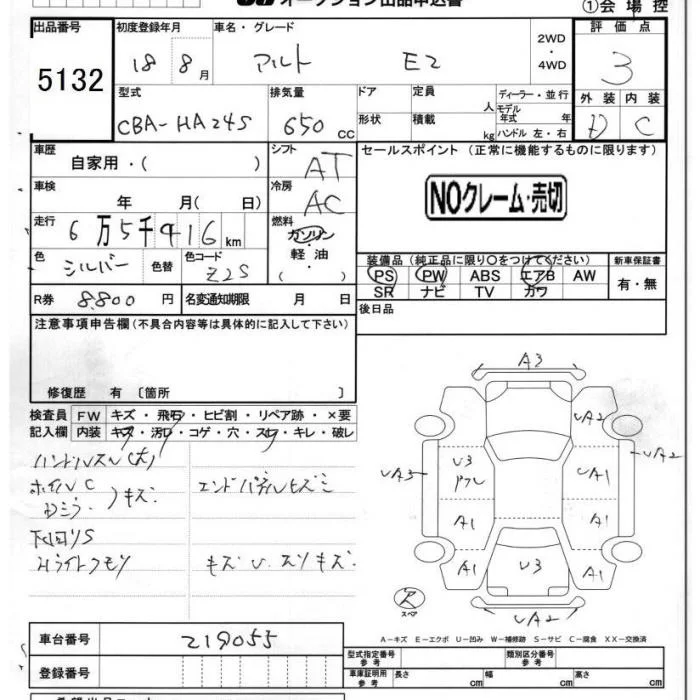 オークション出品申込書
①会場控
出品番号 初度登録年月 車名・グレード 評価点
5132 18 8月 アルト E2 2WD・4WD 3
型式 排気量 ドア 定員 人 ディーラー・並行 外装 内装
CBA-HA24S 650cc 形状 積載 kg モデル年式 年 ハンドル 左・右 D C
車歴 シフト セールスポイント (正常に機能するものに限ります)
自家用・( ) AT
車検 冷房 NOクレーム・売切
年 月( 日) AC
走行 燃料
6万5千416km ガソリン・軽油・( )
装備品 (純正品に限り○をつけてください) 新車保証書
色 シルバー 色替 色コード Z2S
PS PW ABS エアB AW 有・無
SR ナビ TV カワ
R券 8,800円 名変通知期限 月 日 後日品
注意事項申告欄(不具合内容等は具体的に記入して下さい)
修復歴 有 〔箇所 〕
検査員 FW キズ・飛石・ヒビ割・リペア跡・×要
記入欄 内装 キズ・汚レ・コゲ・穴・スレ・キレ・破レ
ハンドルスレ(大)
ホイルC
Dミラー )キズ エンドパネルヒズミ
下回りS
Hライトクモリ キズ U スリキズ
A3
UA2
U3 UA3 A1 UA2
A1 A1
A1 U3 A1
スペア UA2
A-キズ E-エクボ U-凹み W-補修跡 S-サビ C-腐食 XX-交換済
車台番号 219055
型式指定番号 参考 類別区分番号 参考
登録番号
車庫証明用 参考 長さ cm 幅 cm 高さ cm